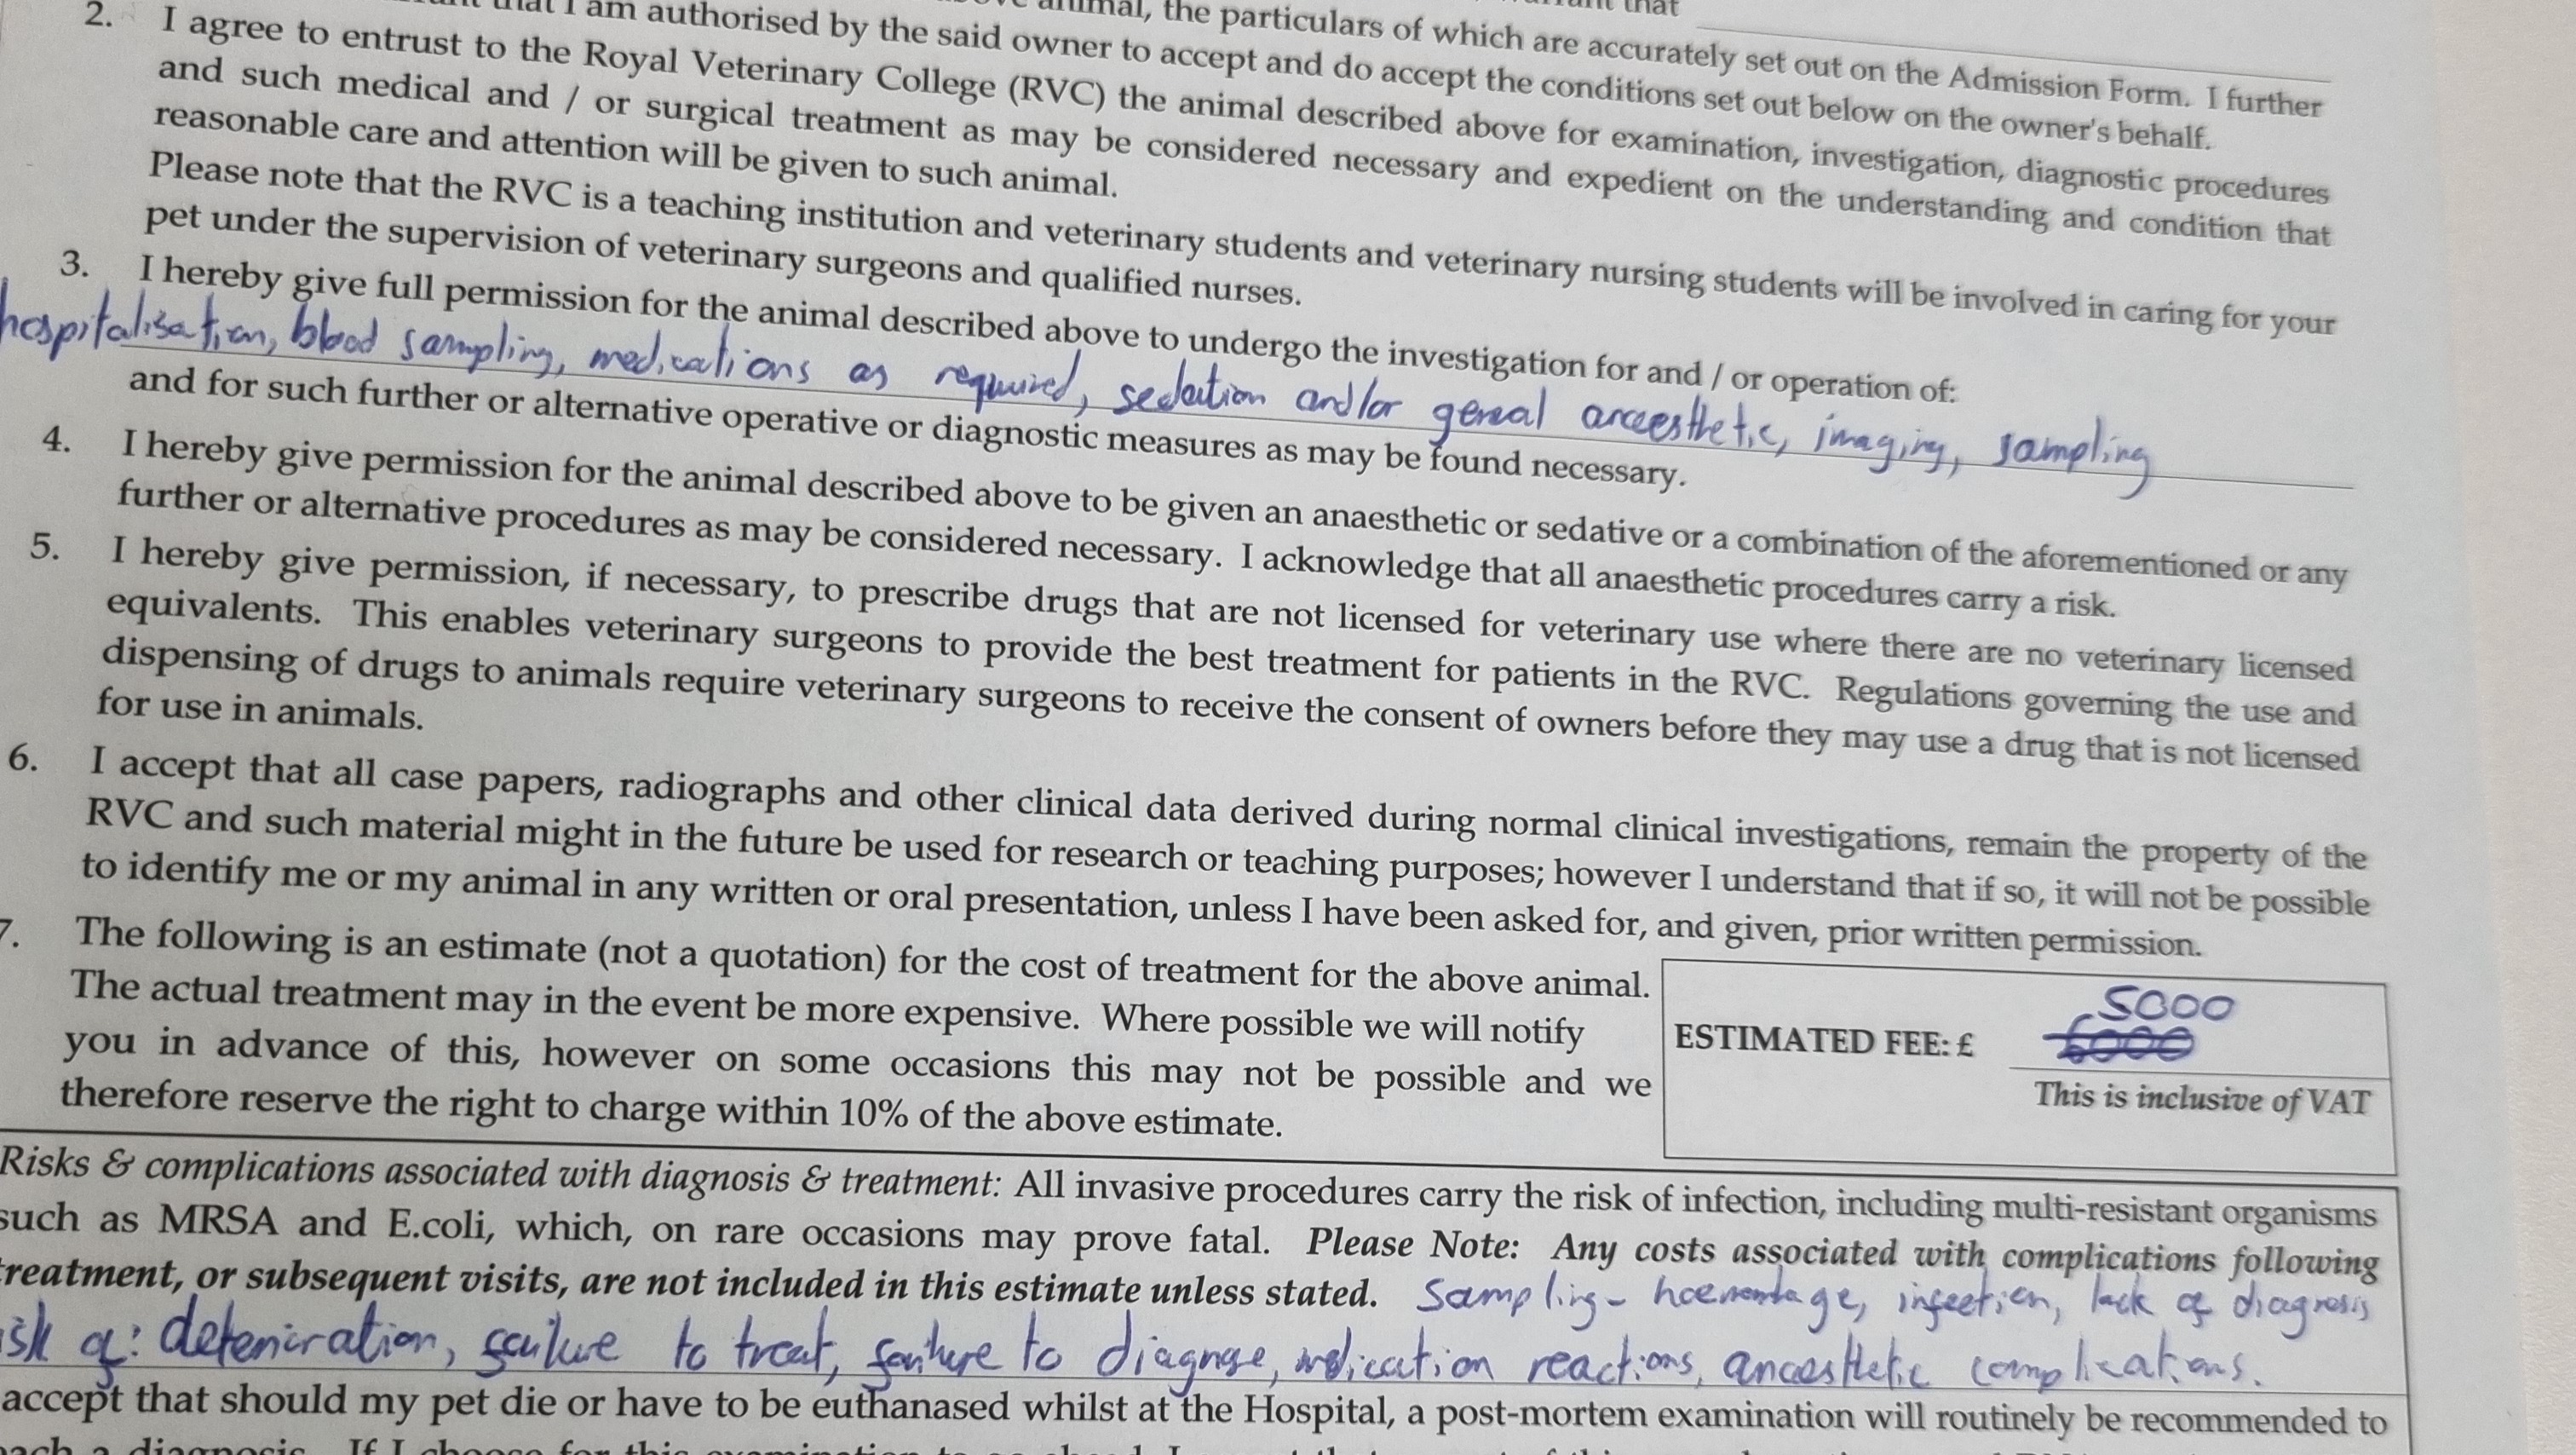 that I am authorised by the said owner to accept and do accept the conditions set out below on the owner's behalf.
animal, the particulars of which are accurately set out on the Admission Form. I further
that
2. I agree to entrust to the Royal Veterinary College (RVC) the animal described above for examination, investigation, diagnostic procedures
and such medical and / or surgical treatment as may be considered necessary and expedient on the understanding and condition that
reasonable care and attention will be given to such animal.
Please note that the RVC is a teaching institution and veterinary students and veterinary nursing students will be involved in caring for your
pet under the supervision of veterinary surgeons and qualified nurses.
3. I hereby give full permission for the animal described above to undergo the investigation for and / or operation of:
hospitalisation, blood sampling, medications as required, sedation and/or general anaesthetic, imaging, sampling
and for such further or alternative operative or diagnostic measures as may be found necessary.
4. I hereby give permission for the animal described above to be given an anaesthetic or sedative or a combination of the aforementioned or any
further or alternative procedures as may be considered necessary. I acknowledge that all anaesthetic procedures carry a risk.
5. I hereby give permission, if necessary, to prescribe drugs that are not licensed for veterinary use where there are no veterinary licensed
equivalents. This enables veterinary surgeons to provide the best treatment for patients in the RVC. Regulations governing the use and
dispensing of drugs to animals require veterinary surgeons to receive the consent of owners before they may use a drug that is not licensed
for use in animals.
6. I accept that all case papers, radiographs and other clinical data derived during normal clinical investigations, remain the property of the
RVC and such material might in the future be used for research or teaching purposes; however I understand that if so, it will not be possible
to identify me or my animal in any written or oral presentation, unless I have been asked for, and given, prior written permission.
7. The following is an estimate (not a quotation) for the cost of treatment for the above animal.
The actual treatment may in the event be more expensive. Where possible we will notify
you in advance of this, however on some occasions this may not be possible and we
therefore reserve the right to charge within 10% of the above estimate.
5000
ESTIMATED FEE: £ 6000
This is inclusive of VAT
Risks & complications associated with diagnosis & treatment: All invasive procedures carry the risk of infection, including multi-resistant organisms
such as MRSA and E.coli, which, on rare occasions may prove fatal. Please Note: Any costs associated with complications following
treatment, or subsequent visits, are not included in this estimate unless stated. Sampling - haemorrhage, infection, lack of diagnosis
isk of: deterioration, failure to treat, failure to diagnose, medication reactions, anaesthetic complications.
accept that should my pet die or have to be euthanased whilst at the Hospital, a post-mortem examination will routinely be recommended to